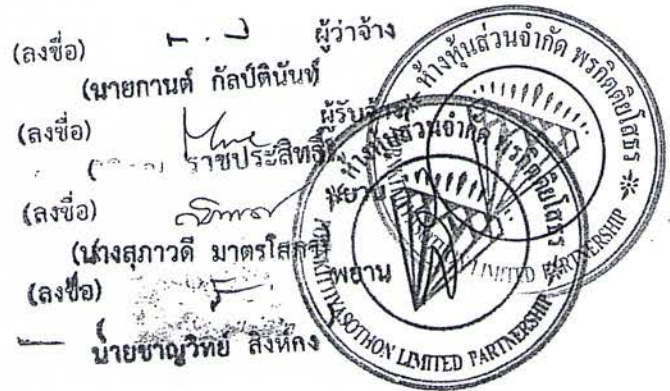 (ลงชื่อ) ผู้ว่าจ้าง
(นายกานต์ กัลป์ตินันท์
(ลงชื่อ) ผู้รับจ้าง
ราชประสิทธิ์
(ลงชื่อ) พยาน
(นางสุภาวดี มาตรโสภา
(ลงชื่อ) พยาน
นายชาญวิทย์ สิงห์คง
ห้างหุ้นส่วนจำกัด พรกิตติยโสธร
LIMITED PARTNERSHIP
ห้างหุ้นส่วนจำกัด พรกิตติยโสธร
PORNKITTIYASOTHON LIMITED PARTNERSHIP